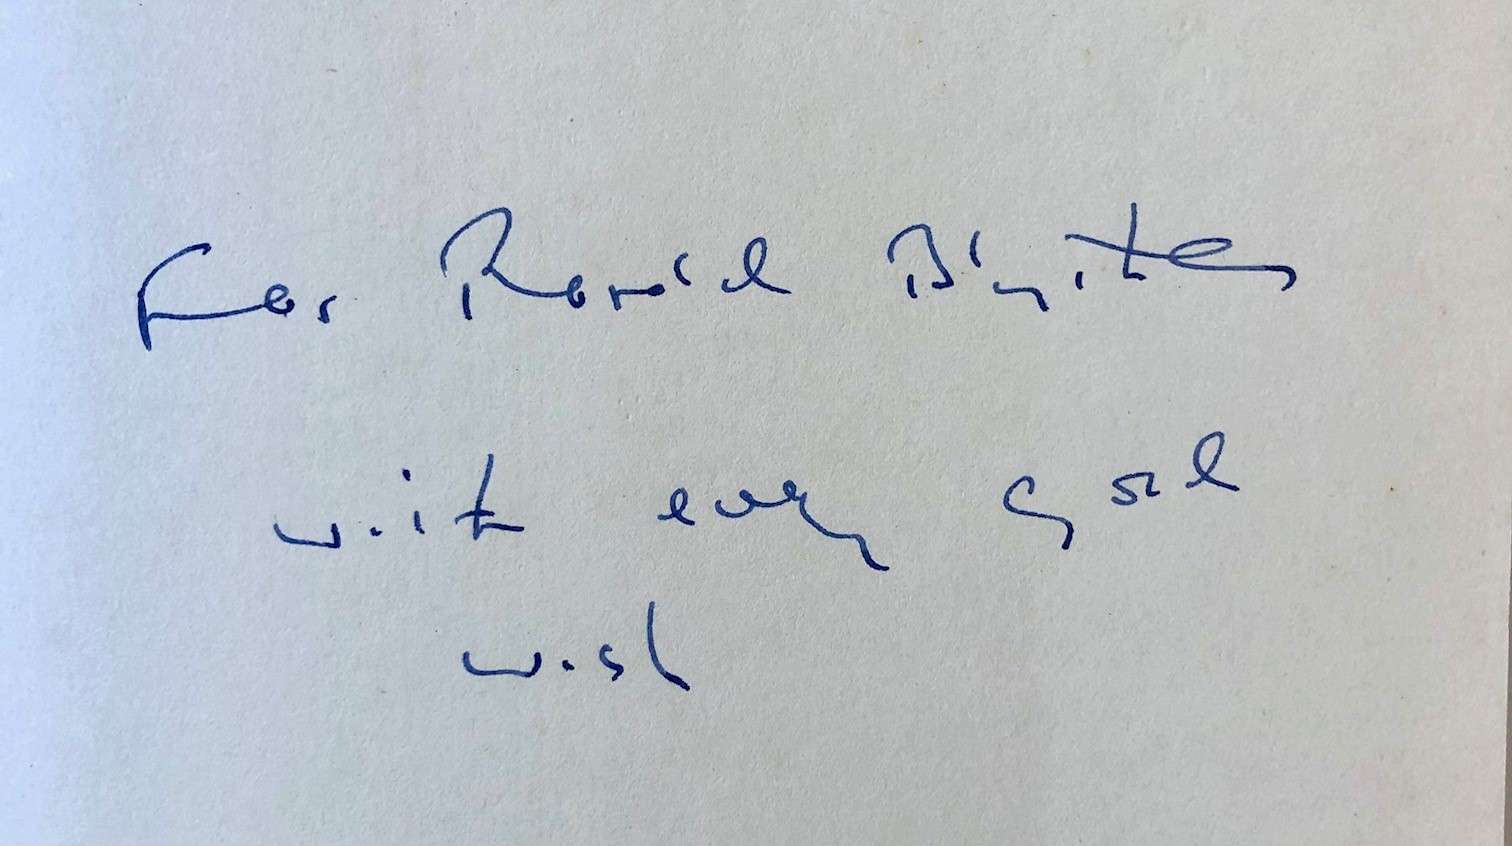 For Ronald Blythe
with every good
wish